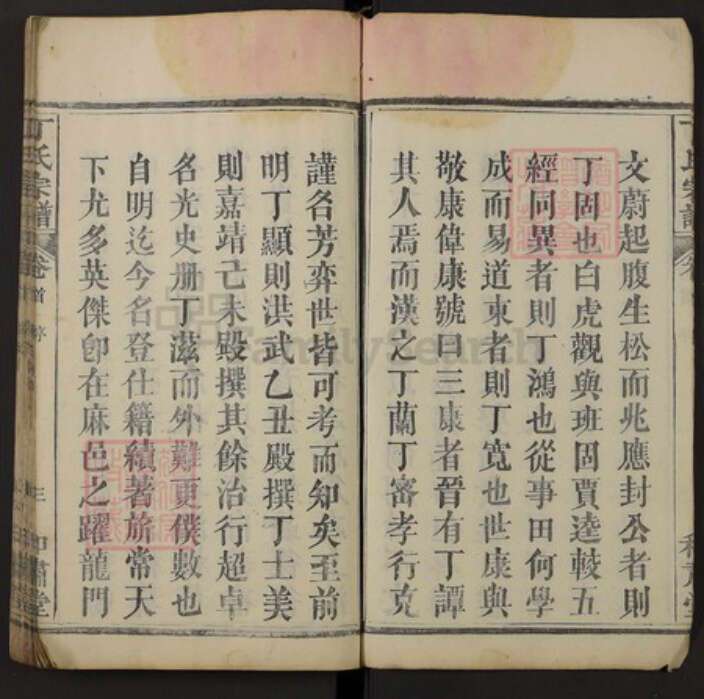 文蔚起腹生松而兆應封公者則
丁固也白虎觀與班固賈逵較五
經同異者則丁鴻也從事田何學
成而易道東者則丁寬也世康與
敬康偉康號曰三康者晉有丁譚
其人焉而漢之丁蘭丁審孝行克
謹名芳弈世皆可考而知矣至前
明丁顯則洪武乙丑殿撰丁士美
則嘉靖己未殿撰其餘治行超卓
名光史册丁滋而外難更僕數也
自明迄今名登仕籍績著旂常天
下尤多英傑卽在麻邑之躍龍門
丁氏宗譜
卷首
序
三
和肅堂
FamilySearch